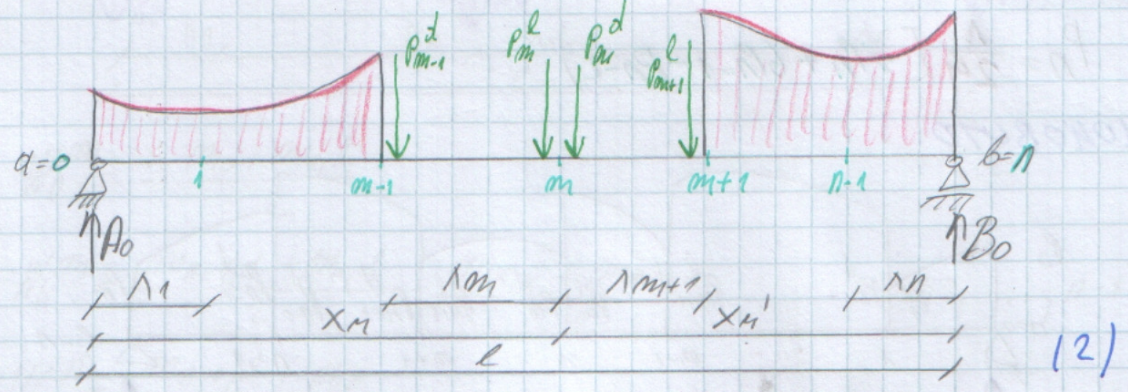 P^d_{m-1} P^l_m P^d_m P^l_{m+1}
a=0 1 m-1 m m+1 n-1 b=n
A₀ B₀
λ1 λm λm+1 λn
xm xm'
l
(2)